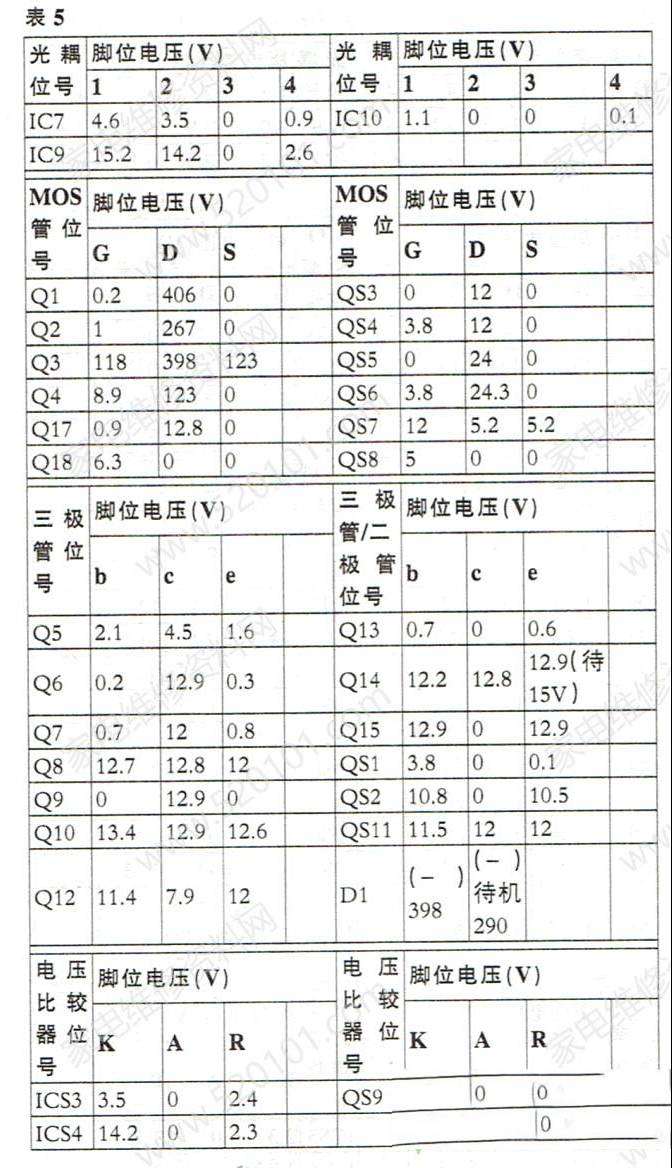 表 5
光 耦 脚位电压(V) 光 耦 脚位电压(V)
位号 1 2 3 4 位号 1 2 3 4
IC7 4.6 3.5 0 0.9 IC10 1.1 0 0 0.1
IC9 15.2 14.2 0 2.6
MOS 脚位电压(V) MOS 脚位电压(V)
管 位 管 位
号 G D S 号 G D S
Q1 0.2 406 0 QS3 0 12 0
Q2 1 267 0 QS4 3.8 12 0
Q3 118 398 123 QS5 0 24 0
Q4 8.9 123 0 QS6 3.8 24.3 0
Q17 0.9 12.8 0 QS7 12 5.2 5.2
Q18 6.3 0 0 QS8 5 0 0
三 极 脚位电压(V) 三 极 脚位电压(V)
管 位 管/二
号 b c e 极 管 b c e
位号
Q5 2.1 4.5 1.6 Q13 0.7 0 0.6
Q6 0.2 12.9 0.3 Q14 12.2 12.8 12.9(待
15V)
Q7 0.7 12 0.8 Q15 12.9 0 12.9
Q8 12.7 12.8 12 QS1 3.8 0 0.1
Q9 0 12.9 0 QS2 10.8 0 10.5
Q10 13.4 12.9 12.6 QS11 11.5 12 12
Q12 11.4 7.9 12 D1 (- )
398
(- )
待机
290
电 压 脚位电压(V) 电 压 脚位电压(V)
比 较 比 较
器 位 K A R 器 位 K A R
号 号
ICS3 3.5 0 2.4 QS9 0 0
ICS4 14.2 0 2.3 0
家电维修资料网
www.520101.com